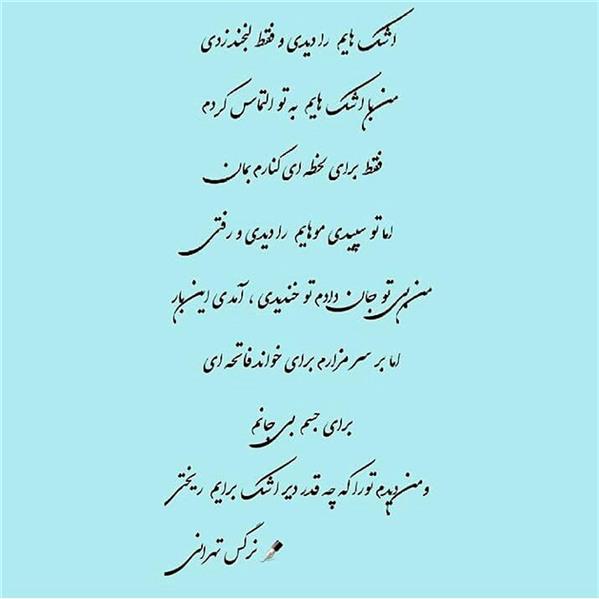 اشک هایم را دیدی و فقط لبخند زدی
من با اشک هایم به تو التماس کردم
فقط برای لحظه ای کنارم بمان
اما تو سپیدی موهایم را دیدی و رفتی
من بی تو جان دادم تو خندیدی ، آمدی این بار
اما بر سر مزارم برای خواند فاتحه ای
برای جسم بی جانم
و من دیدم تو را که چه قدر دیر اشک برایم ریختی
نرگس تهرانی